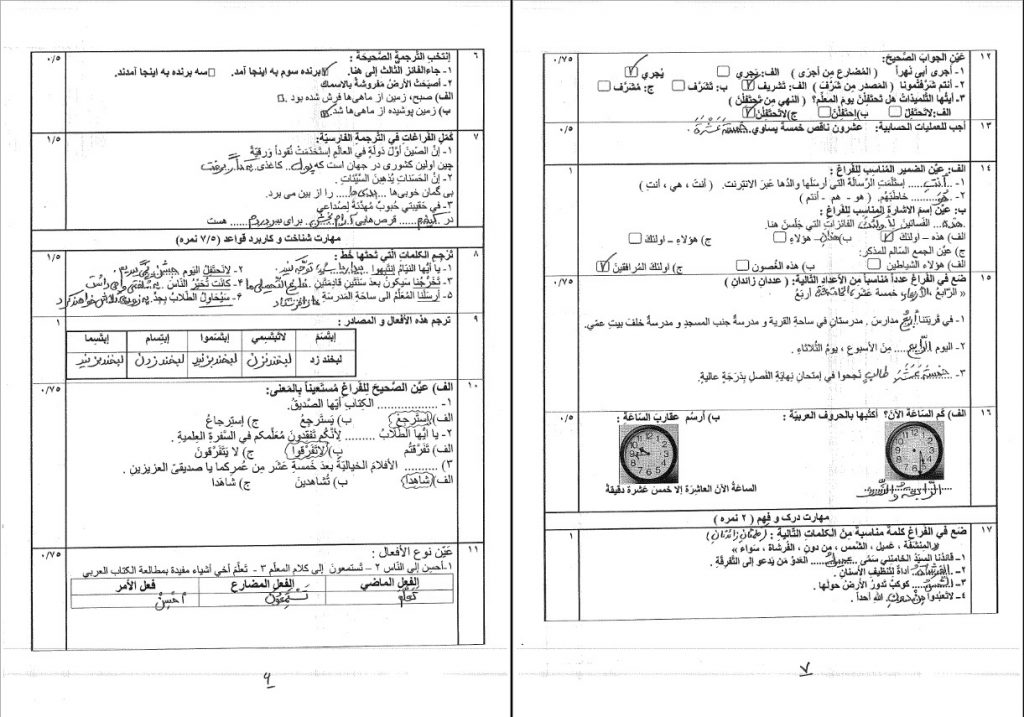 ٦ إنتخبِ التَّرجمةَ الصَّحيحَةَ : ٠/٥
١- جاءالفائز الثّالث إلى هنا. برنده سوم به اینجا آمد. سه برنده به اینجا آمدند.
٢- أصبَحَتْ الأرضُ مَفروشةً بالاسماك
الف) صبح، زمین از ماهی‌ها فرش شده بود.
ب) زمین پوشیده از ماهی‌ها شد.
٧ كمّل الفراغات في التّرجمة الفارسيّة: ١/٥
١- إنَّ الصّينَ أوَّلُ دَولةٍ في العالَمِ إستَخدَمَتْ نُقوداً وَرَقيَّةً
چین اولین کشوری در جهان است که پول کاغذی به کار گرفت
٢- إنَّ الحَسَناتِ يُذهِبنَ السَّيِّئاتِ.
بی گمان خوبی‌ها بدی‌ها را از بین می برد.
٣- في حَقيبتي حُبوبٌ مُهَدِّئةٌ لِصُداعي
در کیفم قرص‌هایی آرام بخش برای سردردم هست
مهارت شناخت و کاربرد قواعد (٧/٥ نمره)
٨ تَرجِم الكلمات الّتي تَحتَها خَط : ١/٥
١- يا أيُّها النّيامُ إنتَبِهوا
٢- لاتَحتَفِلُ اليوم
٣- تَخَرُّجُنا سيكونُ بعدَ سَنَتَينِ قادِمَتَينِ.
٤- كانَتْ تُخبِرُ النّاسَ
٥- أرسَلَنا المُعَلِّمُ الى ساحَةِ المَدرَسَةِ
٦- سَيُحاولُ الطُّلابُ بِجِدٍ
٩ ترجم هذه الأفعال و المصادر : ١
إبتَسَمَ لاتَبتَسِمي إبتَسَموا إبتِسام إبتَسِما
لبخند زد لبخند نزن لبخند زدن
١٠ الف) عيِّن الصَّحيحَ لِلفراغِ مُستَعيناً بِالمَعنى: ٠/٧٥
١- ................ الكِتابَ أيُّها الصَّديقُ.
الف) إستَرجِعْ ب) يَستَرجِعُ ج) إستِرجاعُ
٢- يا أيُّها الطُّلابُ ......... لِأنَّكُم تَفقِدونَ مُعَلِّمَكم في السَّفرةِ العِلميةِ.
الف) تَفَرَّقتُم ب) لاتَفَرَّقوا ج) لا يَتَفَرَّقونَ
٣) .......... الأفلامَ الخياليَّةَ بعدَ خَمسةِ عَشَرَ مِن عُمرِكما يا صديقيَّ العزيزين .
الف) شاهِدا ب) تُشاهدينَ ج) شاهَدا
١١ عَيِّن نوع الأفعال : ٠/٧٥
١-أحسِن إلى النّاس ٢ - تَستَمعونَ إلى كلام المعلّم ٣ - تَعَلَّمَ أخي أشياء مفيدة بمطالعة الكتاب العربي
الفعل الماضي الفعل المضارع فعل الأمر
تَعَلَّمَ تَسْتَمِعُونَ أَحْسِنْ
٦
١٢ عَيِّنِ الجوابَ الصَّحيحَ: ٠/٧٥
١- أجرى أبي نهراً ( المُضارع مِن أجرَى ) الف: يَجري ب: يُجري
٢- أنتم شَرَّفتُمونا ( المصدر مِن شَرَّفَ ) الف: تَشريف ب: تَشَرُّف ج: مُشَرَّف
٣- أيتُها التِّلميذاتُ هل تَحتَفِلْنَ يومَ المعلّم؟ ( النهي مِن تَحتَفِلْنَ )
الف: لاتَحتَفِلْ ب) إحتَفِلْنَ ج) لاتَحتَفِلْنَ
١٣ أجب للعمليات الحسابية: عشرون ناقص خمسة يساوي خَمْسَةَ عَشَرَ . ٠/٥
١٤ الف: عَيِّن الضمير المُناسِبَ لِلفراغ : ١
١- أنتِ إستَلَمتِ الرِّسالةَ الّتي أرسَلَها والدُها عَبرَ الانترنت. ( أنتُ ، هي ، أنتِ )
٢- هو خاطَبَهُم. ( هو - هم - أنتم )
ب: عَيِّن إسمَ الاشارةِ المناسبَ لِلفراغ:
هذه الفَساتينُ لِأولئكَ الفائزاتِ الّتي جَلَسنَ هنا.
الف) هذه - اولئكَ ب) هؤلاءِ ج) هؤلاءِ - اولئكَ
ج) عَيِّن الجمع السالم للمذكر:
الف) هؤلاء الشّياطين ب) هذه الغُصون ج) اولئكَ المُرافقينَ
١٥ ضَع في الفَراغ عَدداً مُناسباً مِن الأعدادِ التّاليَة: ( عددان زائدان ) ٠/٧٥
« الرّابعُ الأربعاء خمسة عَشَرَ أربَعُ
١- في قَريَتِنا أربع مدارسَ . مدرستانِ في ساحةِ القريةِ و مدرسةٌ جنبَ المسجدِ و مدرسةٌ خلفَ بيتِ عمّي.
٢- اليوم الرّابع مِنَ الأسبوع ، يومُ الثّلاثاءِ.
٣- خمسة عشر طالب نَجحوا في إمتحانِ نِهايَةِ الفَصلِ بِدَرجَةٍ عاليةٍ.
١٦ الف) كم السّاعَةُ الآن؟ أكتُبها بالحروف العربيّة : ب) أرسُم عقاربَ السّاعَة : ٠/٥
السّاعةُ الآنَ العاشِرَةُ إلا خمسَ عَشرَةَ دقيقةً
الرّابعة و النّصف
مهارت درک و فهم ( ٢ نمره )
١٧ ضَع في الفَراغ كلمةً مناسبةً مِنَ الكلماتِ التّاليَةِ : (کلمتان زائدتان) ١
« المِنشَفَة ، عَميل ، الشّمس ، مِن دونِ ، الفُرشاة ، سَواء »
١- قائدُنا السيّدُ الخامِنئي سَمّى عميل العَدوّ مَن يَدعو إلى التَّفرِقَةِ.
٢- الفرشاة أداةٌ لِتَنظيفِ الأسنانِ .
٣- الشمس كوكبٌ تَدورُ الأرضُ حولَها .
٤- لاتَعبُدوا مِنْ دونِ الله أحداً .
٧